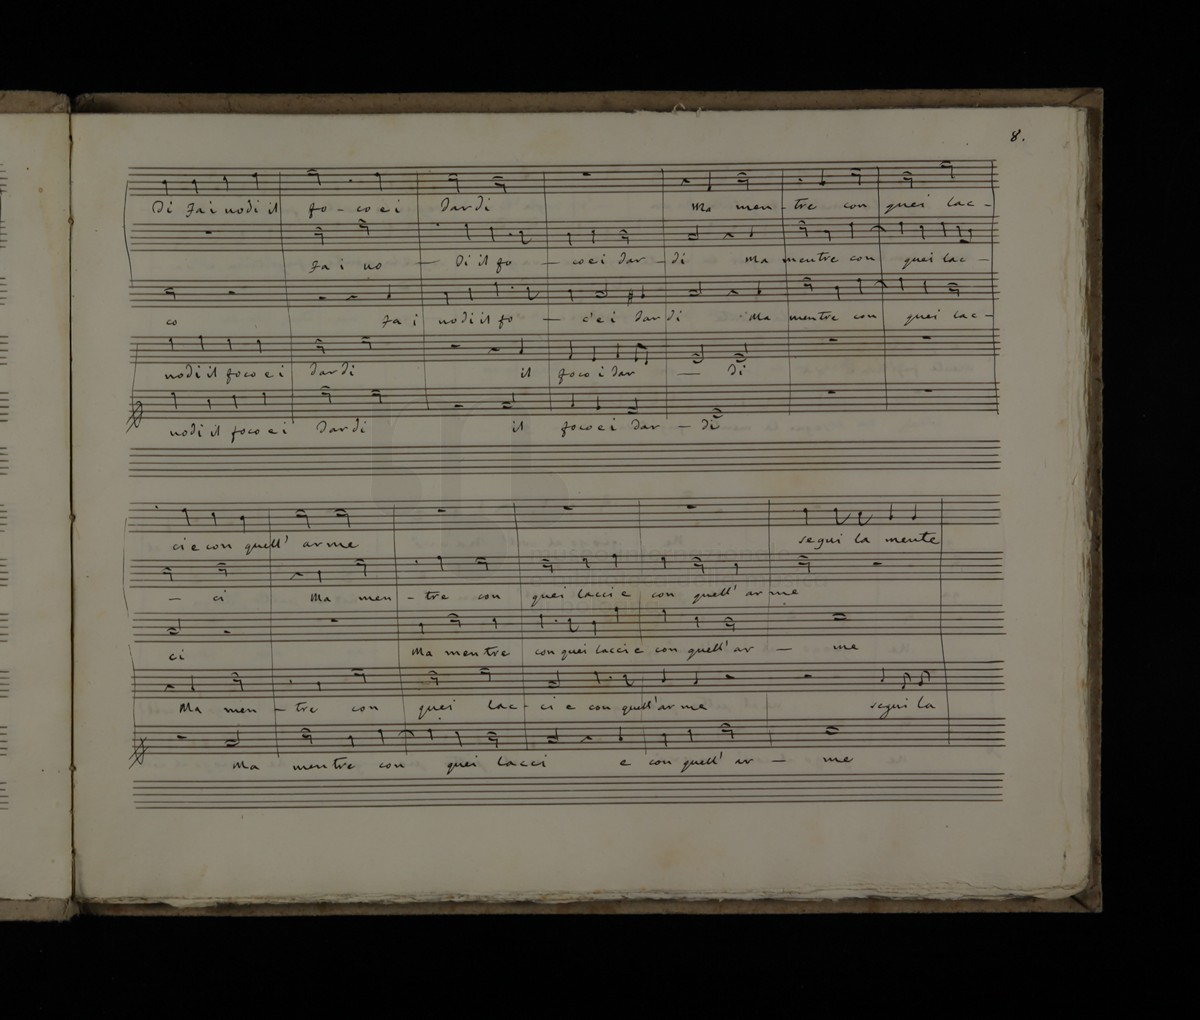 8.
Di fai nodi il fo - co e i dardi Ma men - tre con quei lac -
fa i no — di il fo — co e i dar - di Ma mentre con quei lac —
co fa i nodi il fo — c'e i dardi Ma mentre con quei lac -
nodi il foco e i dardi il foco i dar — di
nodi il foco e i dardi il foco e i dar — di
ci e con quell' arme segui la mente
— ci Ma men - tre con quei lacci e con quell' arme
ci Ma mentre con quei lacci e con quell' ar — me
Ma men - tre con quei lac - ci e con quell' arme segui la
Ma mentre con quei lacci e con quell' ar — me